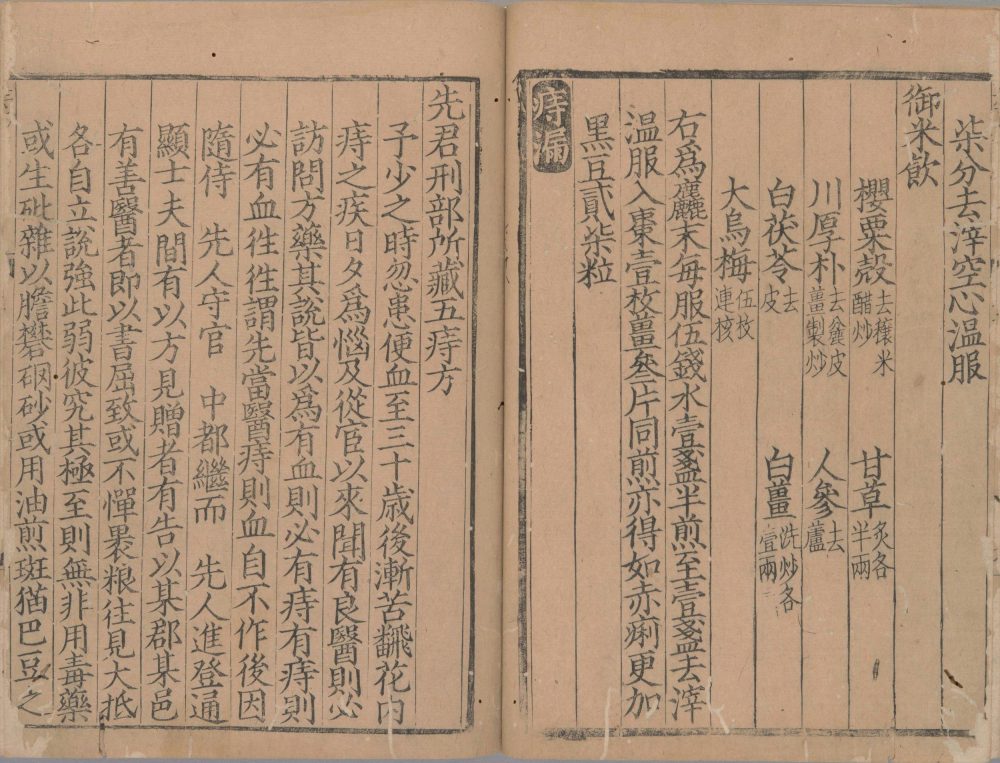 柒分去滓空心温服
御米飲
櫻粟殼去穰米醋炒 甘草炙各半兩
川厚朴去麄皮薑製炒 人參去蘆
白茯苓去皮 白薑洗炒各壹兩
大烏梅伍枚連核
右爲麤末每服伍錢水壹盞半煎至壹盞去滓
温服入棗壹枚薑叄片同煎亦得如赤痢更加
黑豆貳柒粒
痔漏
先君刑部所藏五痔方
予少之時忽患便血至三十歲後漸苦飜花内
痔之疾日夕爲惱及從官以來聞有良醫則必
訪問方藥其說皆以爲有血則必有痔有痔則
必有血徃徃謂先當醫痔則血自不作後因
隨侍 先人守官 中都繼而 先人進登通
顯士夫間有以方見贈者有告以某郡某邑
有善醫者即以書屈致或不憚裹粮往見大抵
各自立說強此弱彼究其極至則無非用毒藥
或生砒雜以膽礬硇砂或用油煎斑猫巴豆之